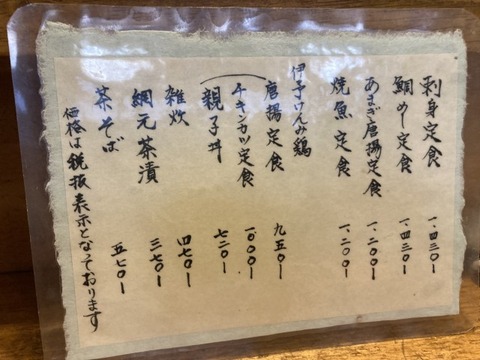 刺身定食 一、四三〇ー
鯛めし定食 一、四三〇ー
あまぎ唐揚定食 一、二〇〇ー
焼魚定食 一、二〇〇ー
伊予けんみ鶏
唐揚定食 九五〇ー
チキンカツ定食 一、〇〇〇ー
親子丼 七二〇ー
雑炊 四七〇ー
網元茶漬 三七〇ー
茶そば 五七〇ー
価格は税抜表示となっております